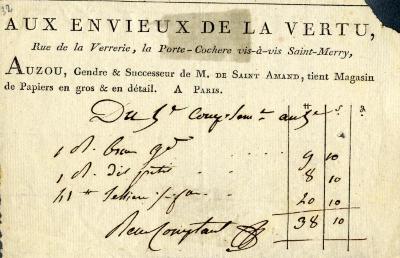 32
AUX ENVIEUX DE LA VERTU,
Rue de la Verrerie, la Porte-Cochere vis-à-vis Saint-Merry,
AUZOU, Gendre & Successeur de M. DE SAINT AMAND, tient Magasin
de Papiers en gros & en détail. A PARIS.
Du 5e
1 9 10
1 8 10
20 10
38 10
Comptant